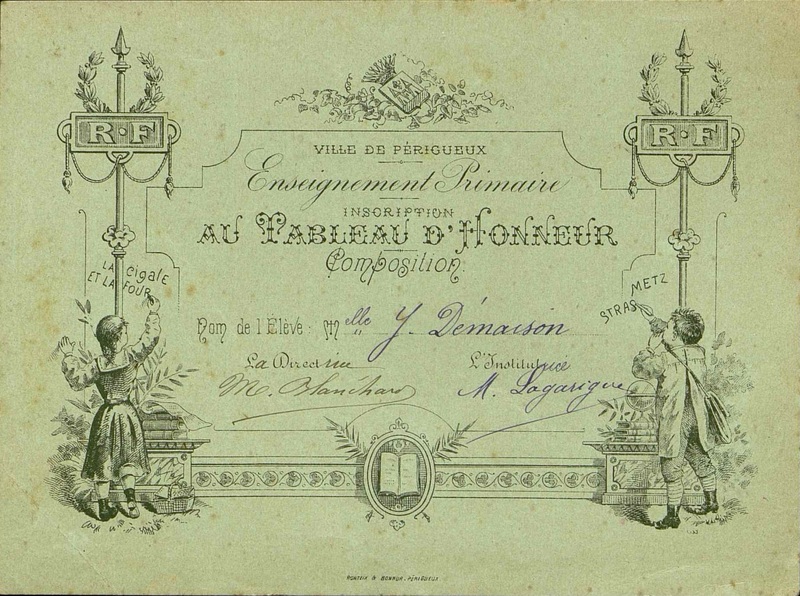 R·F
R·F
VILLE DE PÉRIGUEUX
Enseignement Primaire
INSCRIPTION
AU TABLEAU D'HONNEUR
Composition
LA cigale
ET LA FOUR
METZ
STRAS
Nom de l'Elève: Melle Y. Démaison
La Directrice L'Institutrice
M. Blanchard M. Lagarigue
& BONNUR, PÉRIGUEUX